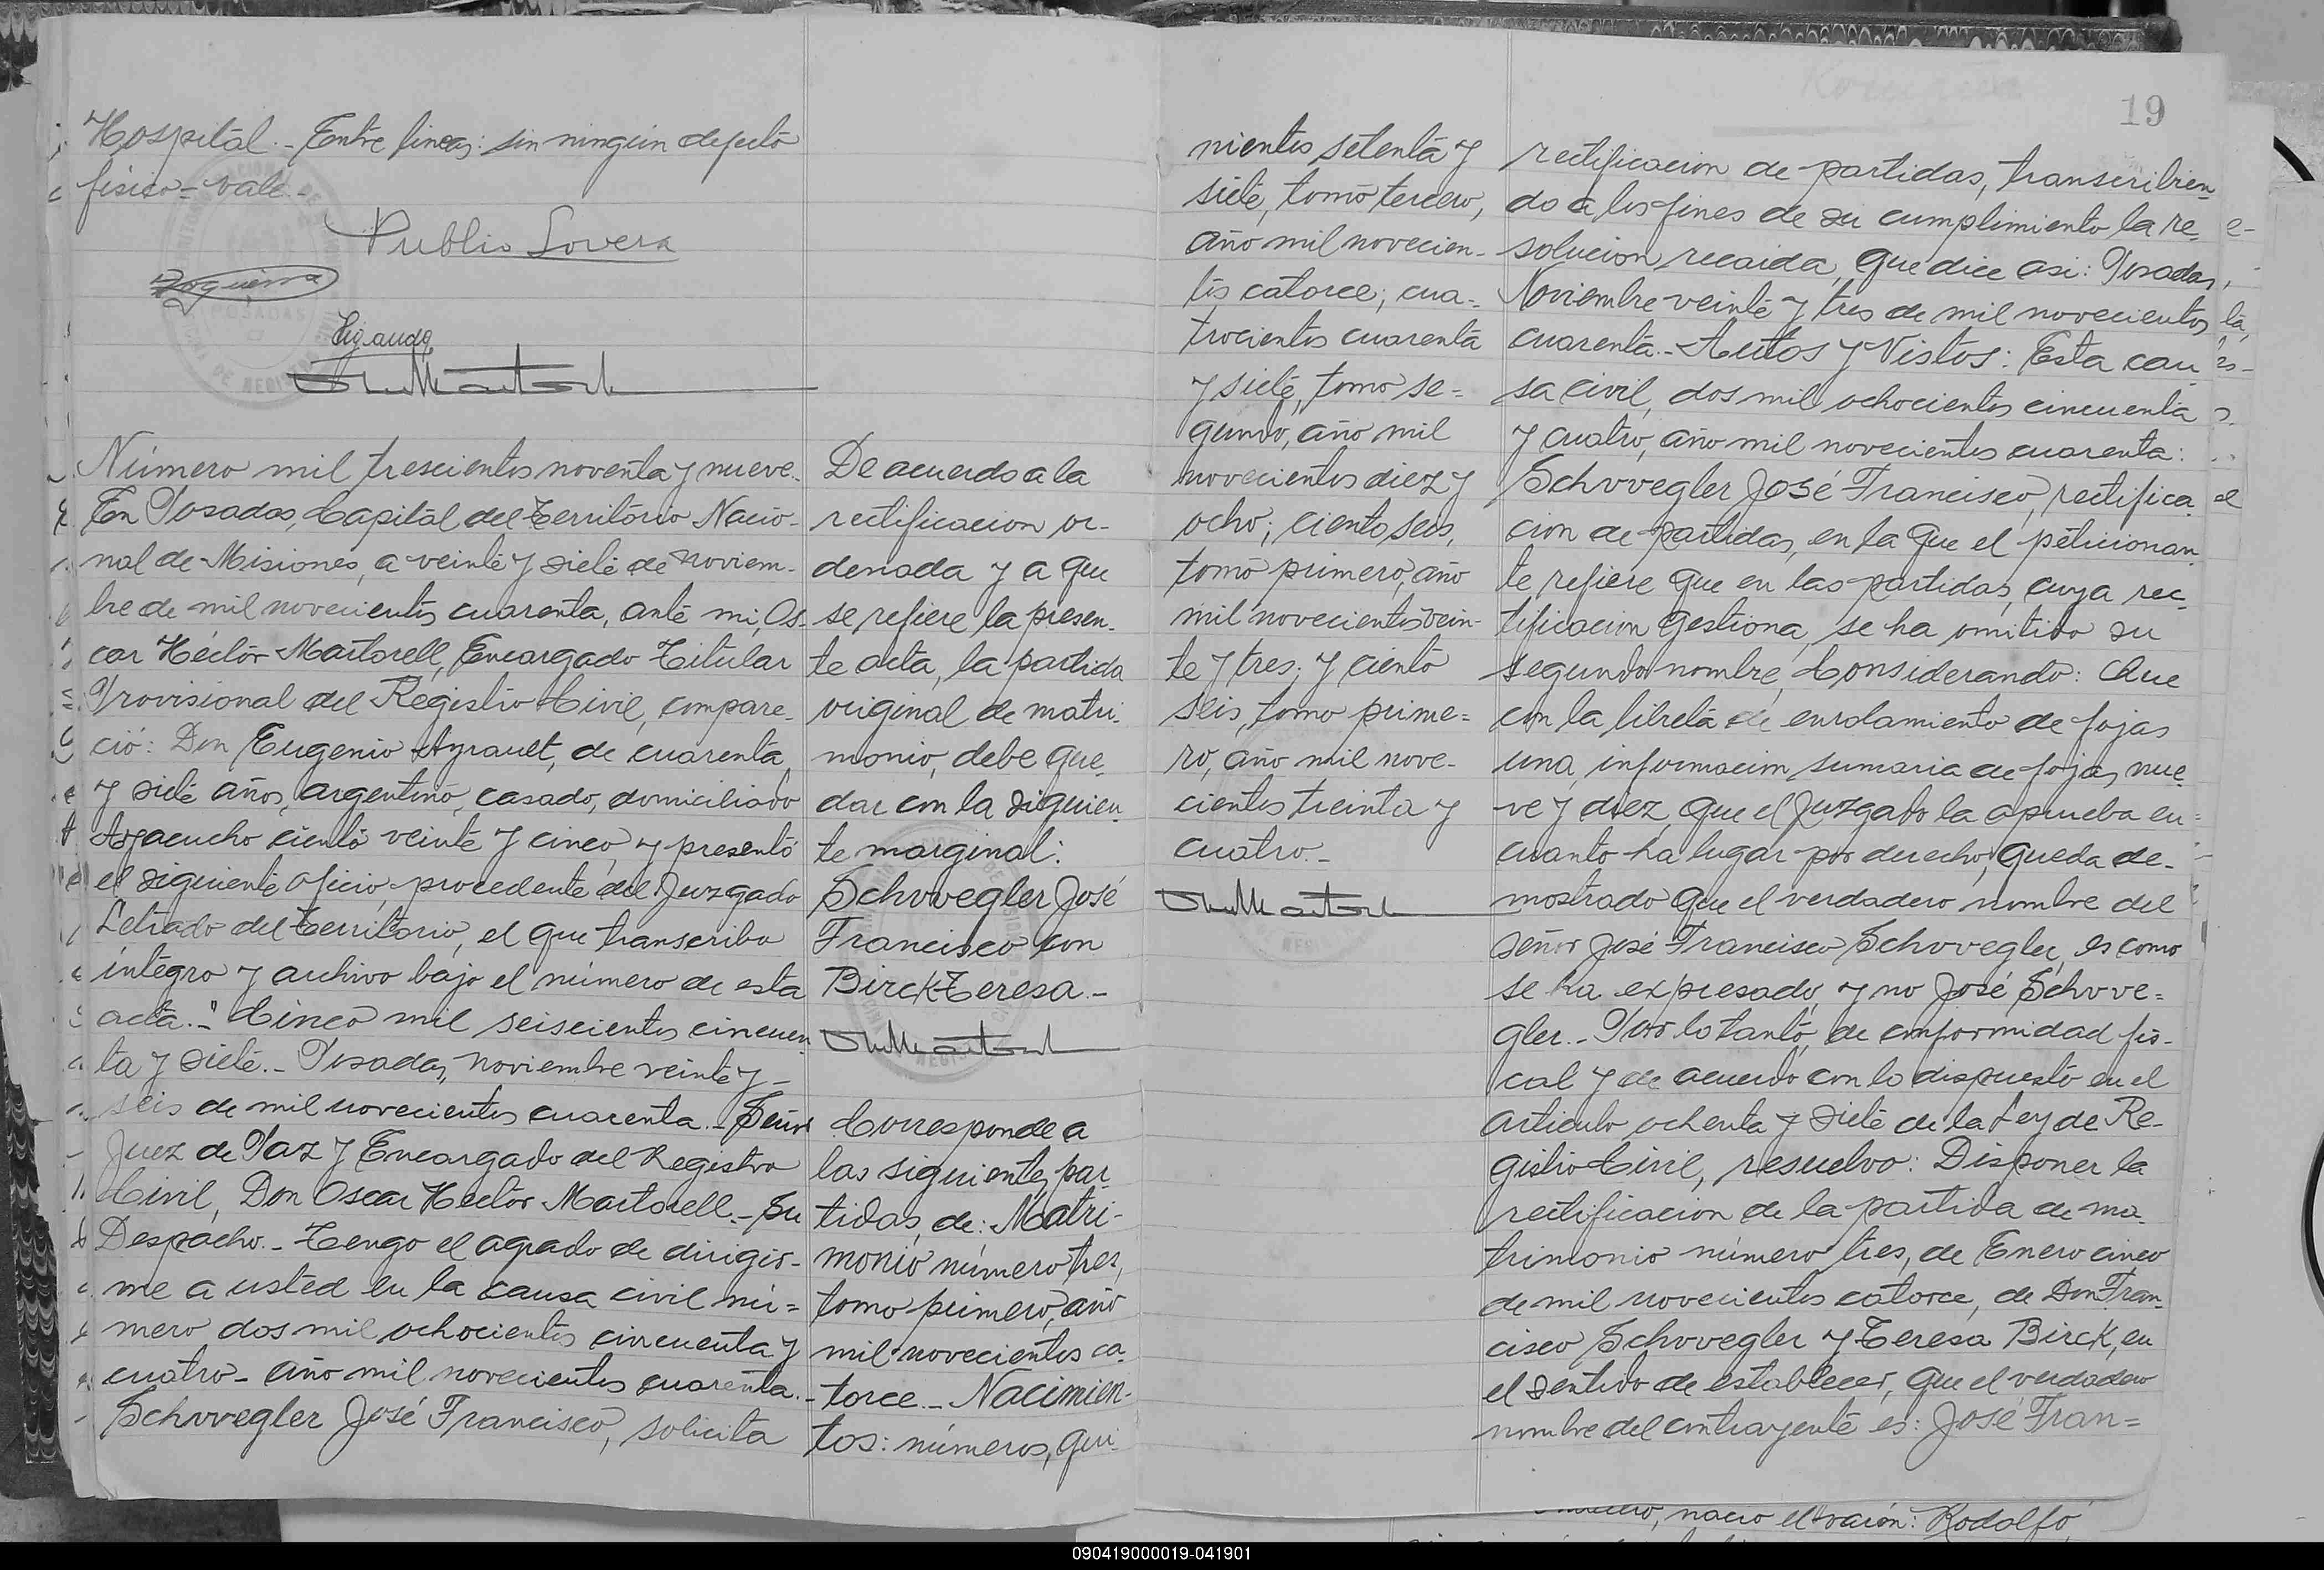 Hospital.- Entre lineas: sin ningún defecto
físico= vale.-
Publio Lovera
POSADAS
Número mil trescientos noventa y nueve.
En Posadas, Capital del Territorio Nacio-
nal de Misiones, a veinte y siete de noviem-
bre de mil novecientos cuarenta, ante mi, Os-
car Héctor Martorell, Encargado Titular
Provisional del Registro Civil, compare-
ció: Don Eugenio Ayrault, de cuarenta
y siete años, argentino, casado, domiciliado
Ayacucho ciento veinte y cinco, y presentó
el siguiente oficio, procedente del Juzgado
Letrado del Territorio, el que transcribo
íntegro y archivo bajo el número de esta
acta.-" Cinco mil seiscientos cincuen-
ta y siete.- Posadas, noviembre veinte y-
seis de mil novecientos cuarenta.- Señor
Juez de Paz y Encargado del Registro
Civil, Don Oscar Hector Martorell.- Su
Despacho.- Tengo el agrado de dirigir-
me a usted en la causa civil nú=
mero dos mil ochocientos cincuenta y
cuatro- año mil novecientos cuarenta.-
Schvvegler José Francisco, solicita
De acuerdo a la
rectificacion or-
denada y a que
se refiere la presen-
te acta, la partida
original de matri-
monio, debe que-
dar con la siguien-
te marginal:
Schvvegler José
Francisco con
Birck Teresa.-
Corresponde a
las siguientes par-
tidas de: Matri-
monio número tres,
tomo primero, año
mil novecientos ca-
torce.- Nacimien-
tos: números, qui-
nientos setenta y
siete, tomo tercero,
año mil novecien-
tos catorce; cua=
trocientos cuarenta
y siete, tomo se=
gundo, año mil
novecientos diez y
ocho; ciento seis,
tomo primero, año
mil novecientos vein-
te y tres; y ciento
seis, tomo prime=
ro, año mil nove-
cientos treinta y
cuatro.-
19
rectificacion de partidas, transcribien-
do a los fines de su cumplimiento la re-
solucion recaida, que dice asi: Posadas,
Noviembre veinte y tres de mil novecientos
cuarenta.- Autos y Vistos: Esta cau-
sa civil, dos mil ochocientos cincuenta
y cuatro, año mil novecientos cuarenta:
Schvvegler José Francisco, rectifica-
cion de partidas, en la que el peticionan-
te refiere que en las partidas, cuya rec-
tificacion gestiona, se ha omitido su
segundo nombre, Considerando: Que
con la libreta de enrolamiento de fojas
una, informacion sumaria de fojas nue-
ve y diez, que el Juzgado la aprueba en=
cuanto ha lugar por derecho, queda de-
mostrado que el verdadero nombre del
señor José Francisco Schvvegler, es como
se ha expresado, y no José Schvve=
gler.- Por lo tanto, de conformidad fis-
cal y de acuerdo con lo dispuesto en el
articulo ochenta y siete de la Ley de Re-
gistro Civil, resuelvo: Disponer la
rectificacion de la partida de ma-
trimonio número tres, de Enero cinco
de mil novecientos catorce, de Don Fran-
cisco Schvvegler y Teresa Birck, en
el sentido de establecer, que el verdadero
nombre del contrayente es: José Fran=
nacio el varón: Rodolfo,
090419000019-041901